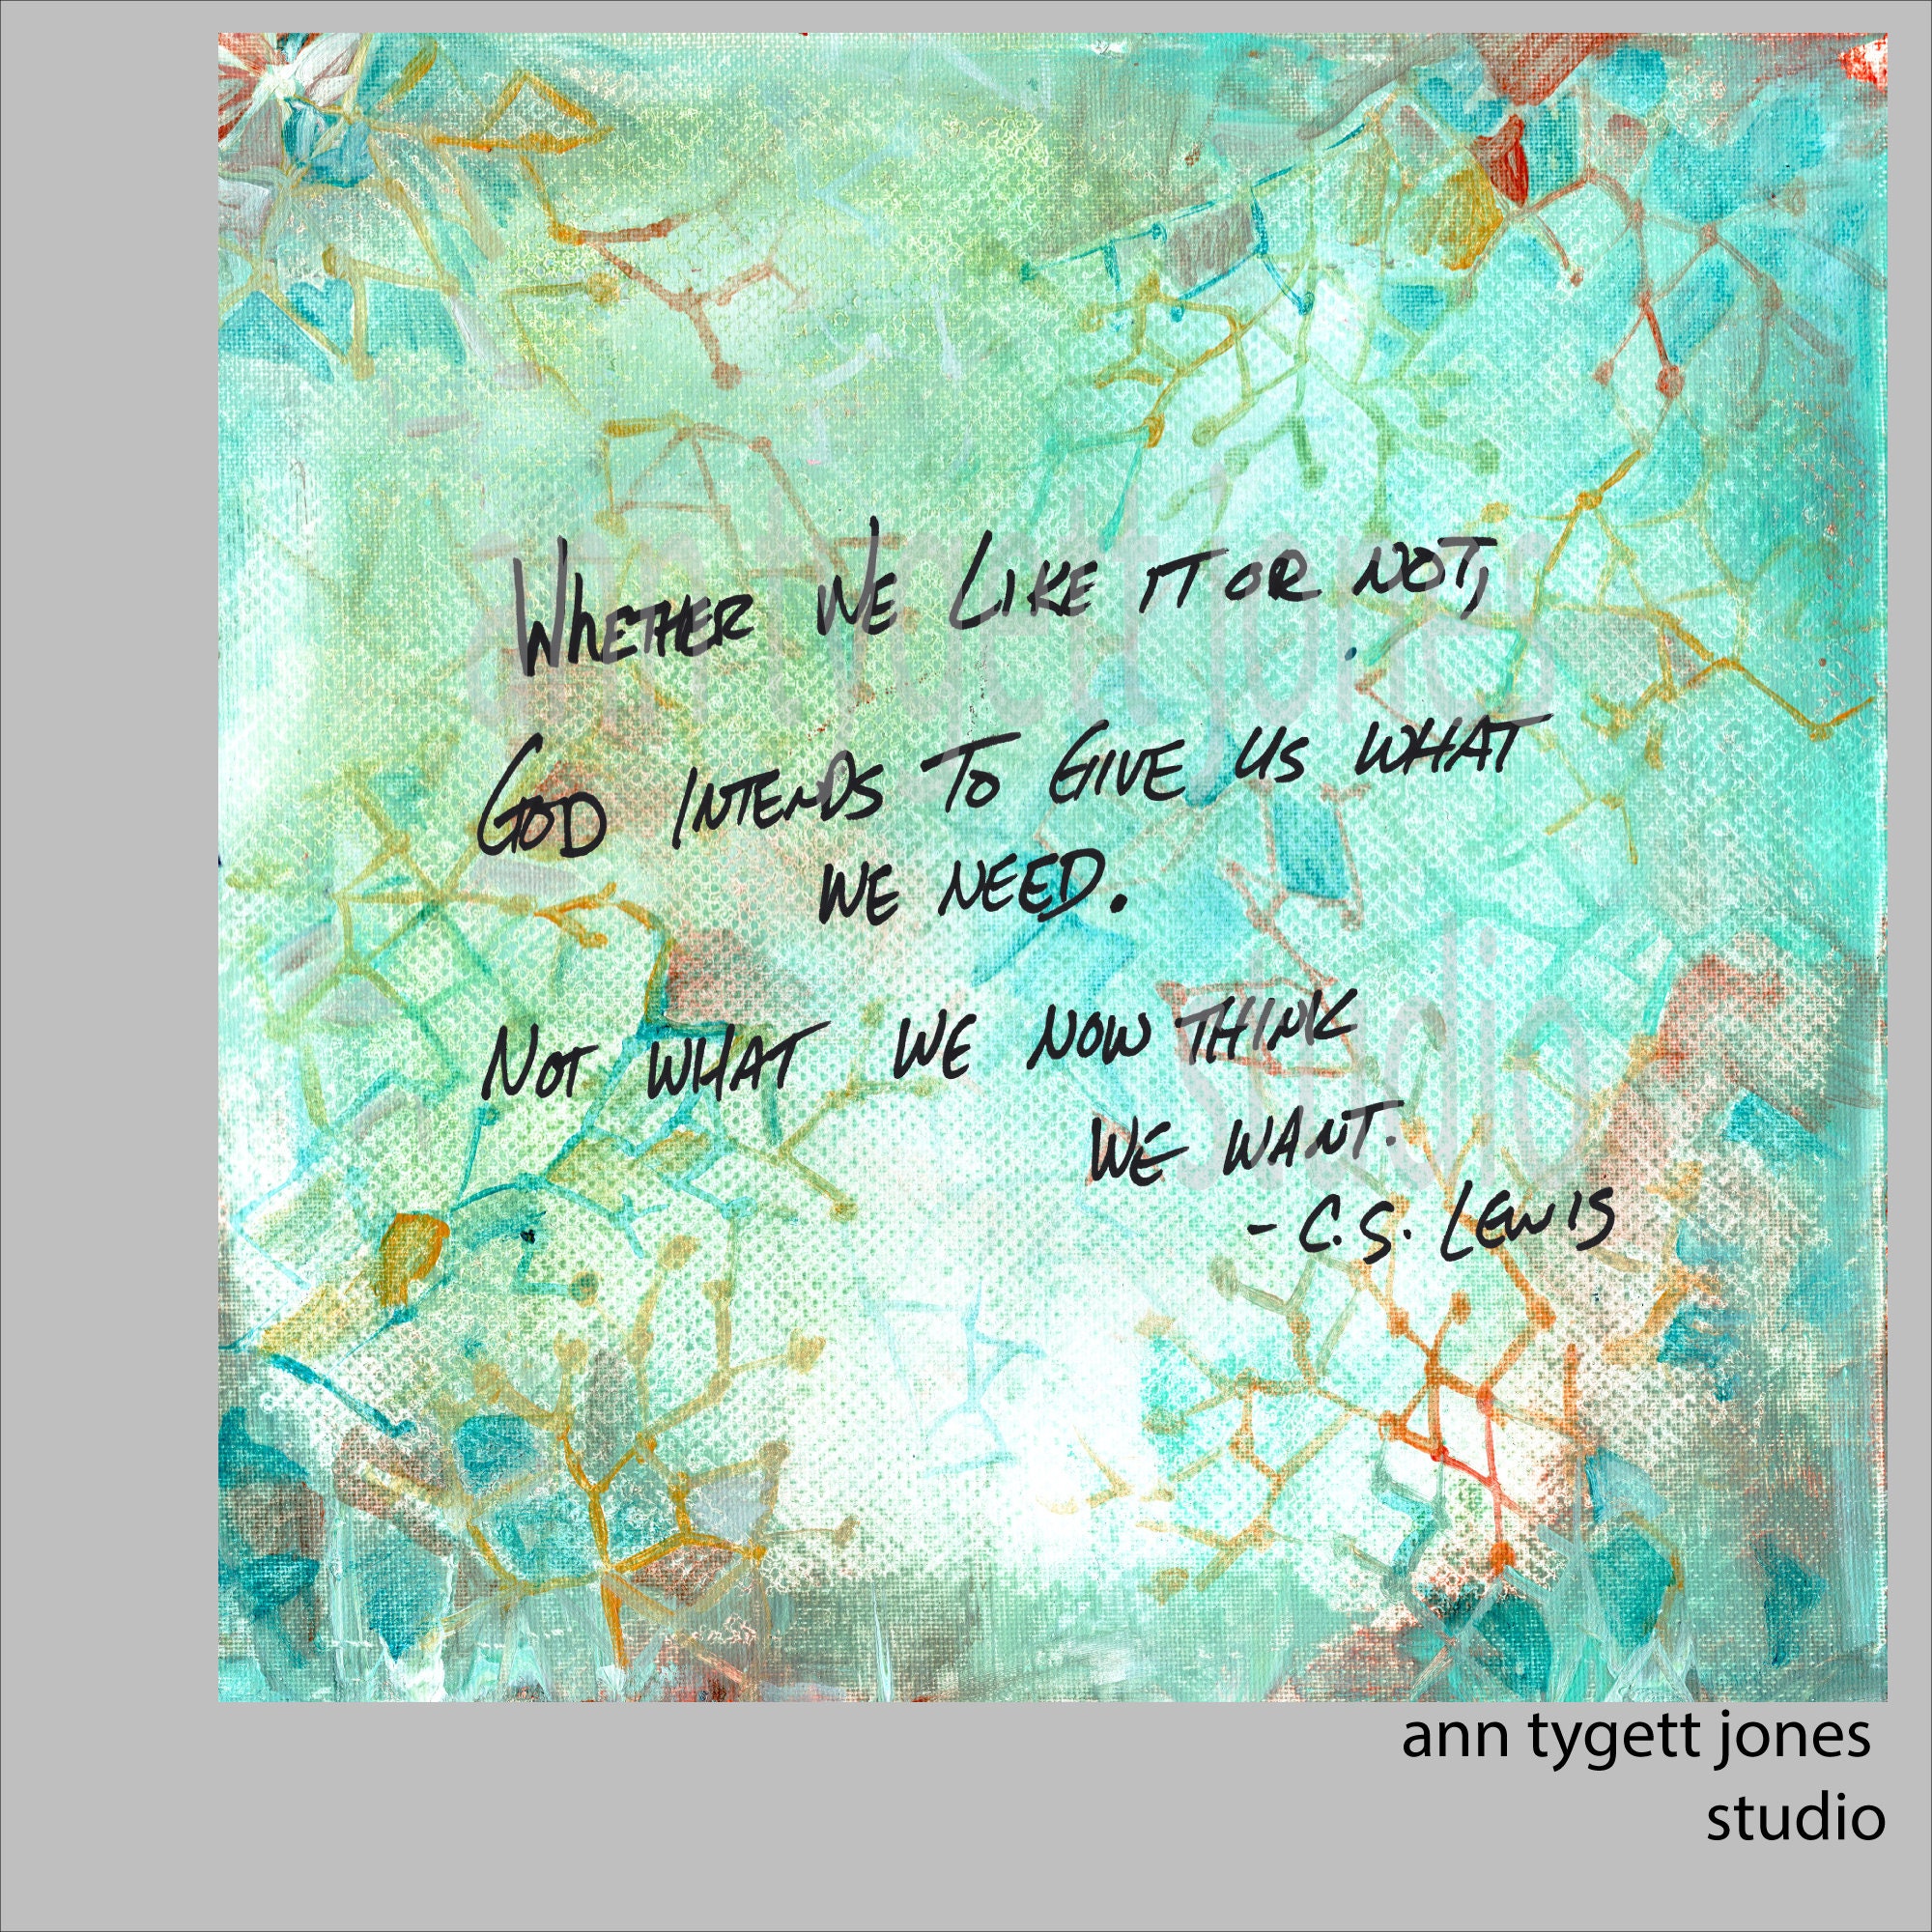 Whether we like it or not,
God intends to give us what
we need.
Not what we now think
we want.
- C.S. Lewis
ann tygett jones
studio
ann tygett jones
studio